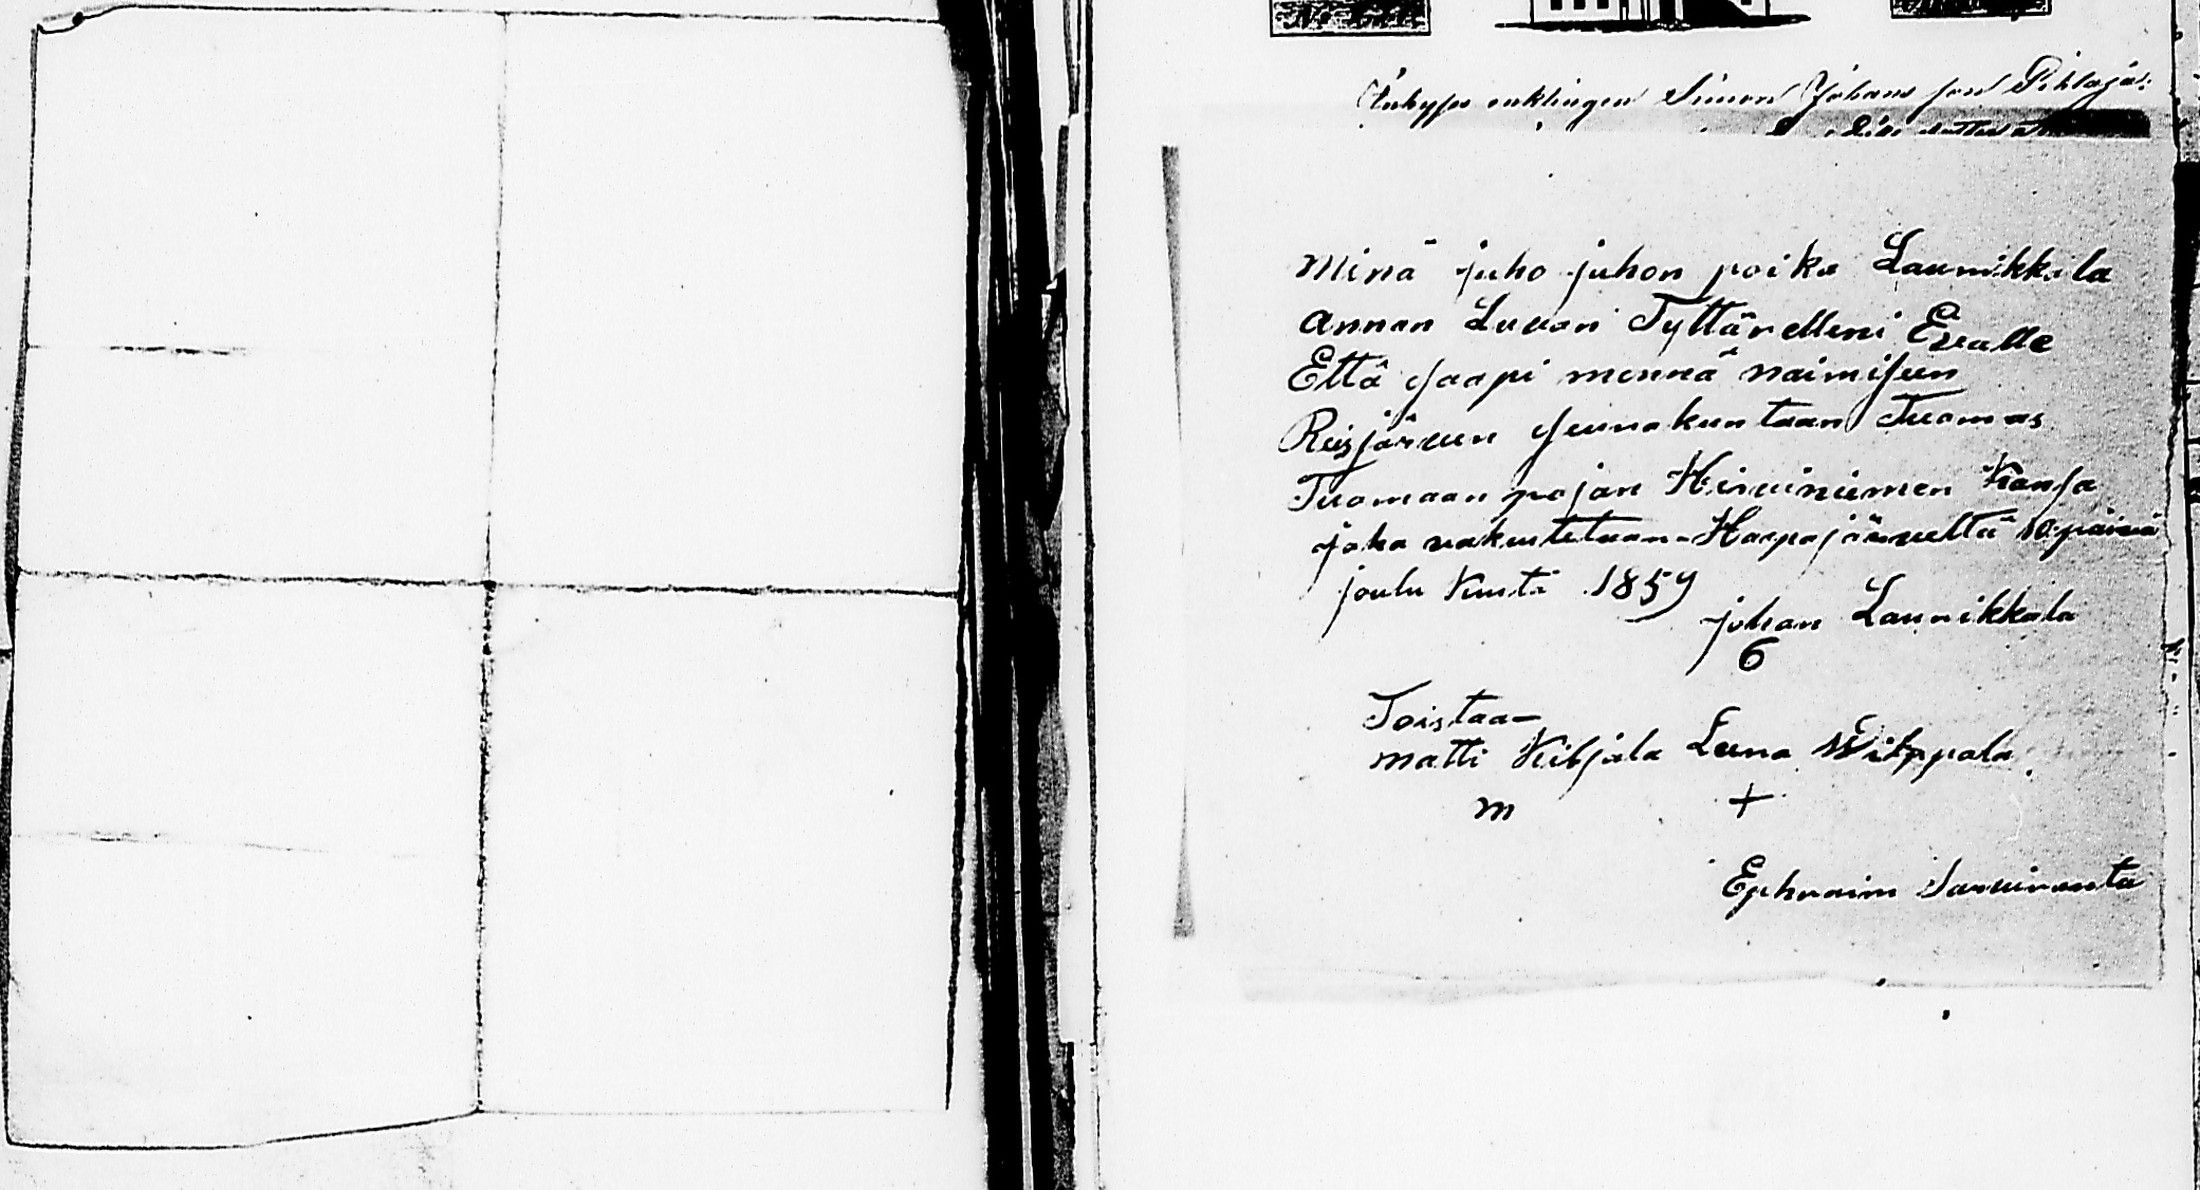 Inhyses enklingen Simon Johans son Pihlaja
Minä juho juhon poika Launikkala
annan Luvan Tyttärelleni Evalle
Että saapi mennä naimiseen
Reisjärven seurakuntaan Tuomas
Tuomaan pojan Hirviniemen Kansa
joka vakuutetaan Haapajärveltä 10 päivä
joulu Kuuta 1859
johan Launikkala
6
Toistaa
matti Kiljala Leena Wilppala
m +
Ephraim Sarviranta